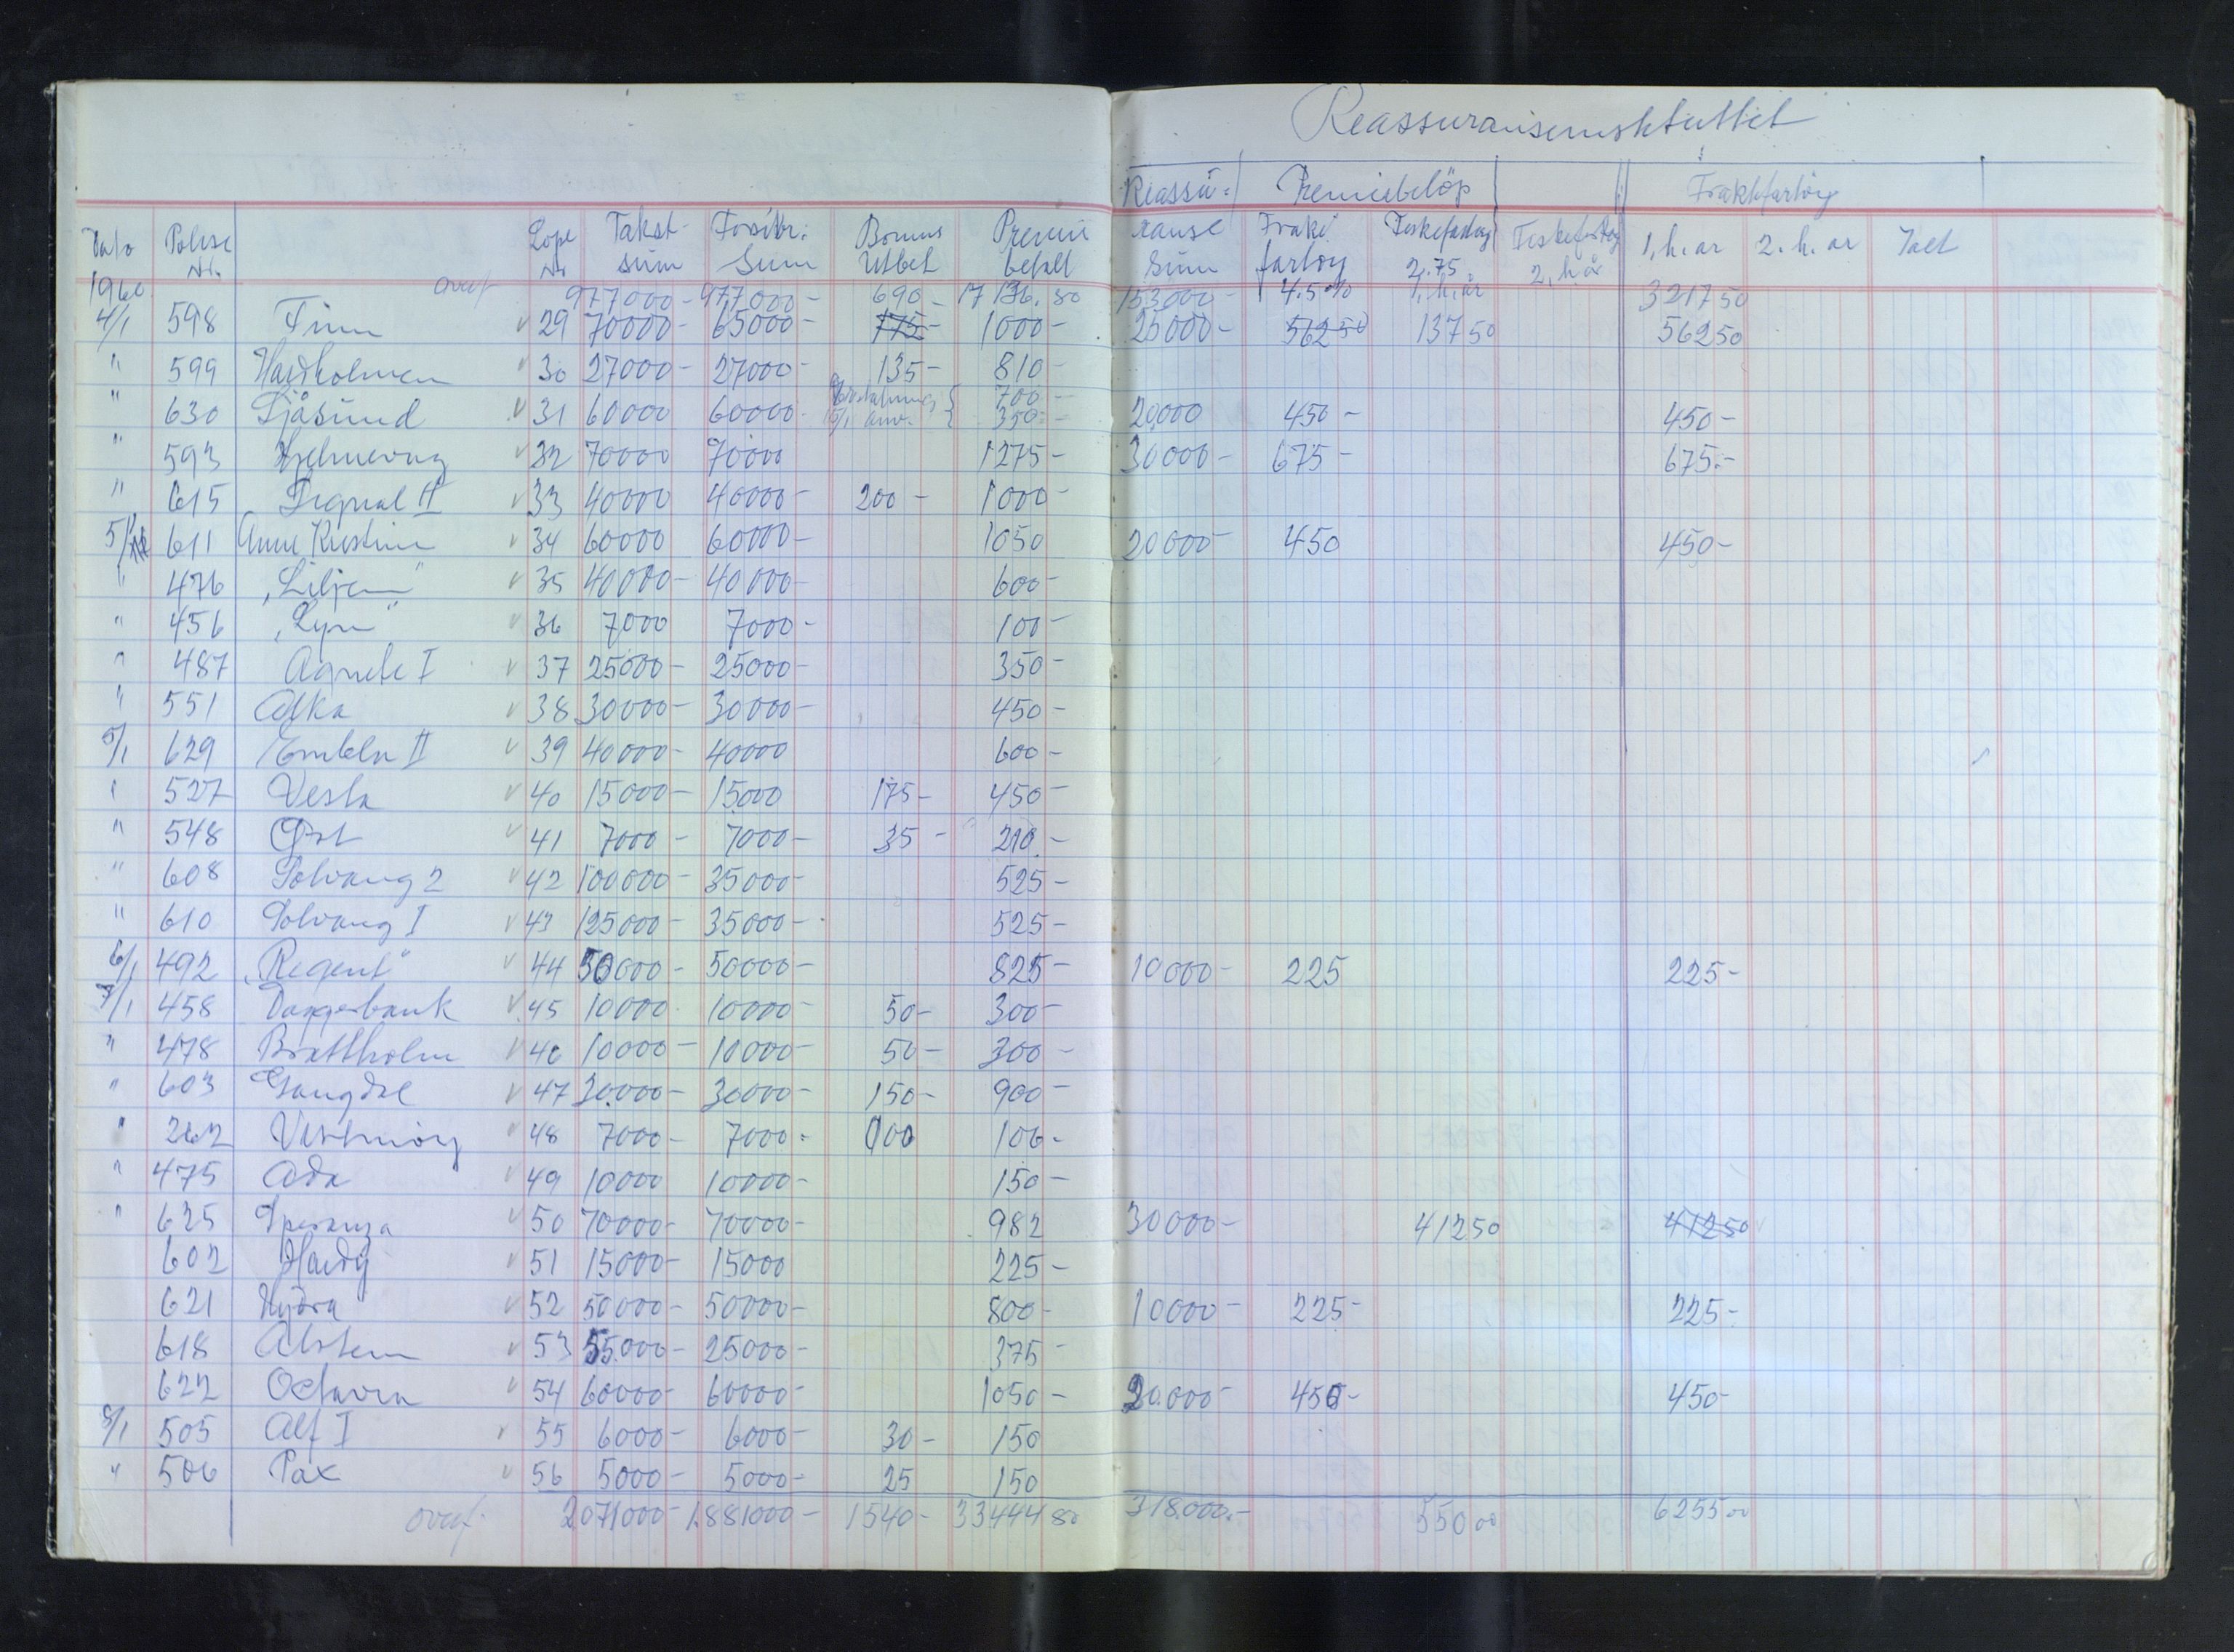 Reassuranseinstituttet
Reassu- Premiebeløp Fraktfartøy
Dato Polise Nr. Løpe Nr Takst- sum Forsikr. Sum Bonus Utbet Premie betalt ranse Sum Frakt fartøy 4.5% Fiskefartøy 2.75 1. h. år Fiskefartøy 2. h. år 1. h. år 2. h. år Ialt
1960 overf 977000- 977000- 690- 17136.80 153000- 321750
4/1 598 Finn v 29 70000- 65000- 175- 1000- 25000- 56250 13750 56250
" 599 Hardholmen v 30 27000- 27000- 135- 810-
" 630 Sjåsund v 31 60000 60000- 5/1 anv. { 700- 350- 20000 450- 450-
" 593 Hjelmevag v 32 70000 70000 1275- 30000- 675- 675.-
" 615 Signal II v 33 40000 40000- 200- 1000-
5/1 611 Anne Kristine v 34 60000 60000- 1050 20000- 450 450-
" 476 „Liljen" v 35 40000- 40000- 600-
" 456 „Lyn" v 36 7000 7000- 100-
" 487 Agnete I v 37 25000- 25000- 350-
" 551 Alka v 38 30000- 30000- 450-
5/1 629 Embla II v 39 40000- 40000 600-
" 527 Vesta v 40 15000- 15000 175- 450-
" 548 Øst v 41 7000- 7000- 35- 210.-
" 608 Solvang 2 v 42 100000- 35000- 525-
" 610 Solvang I v 43 125000- 35000- 525-
6/1 492 „Regent" v 44 50000- 50000- 825- 10000- 225 225-
7/1 458 Doggerbank v 45 10000- 10000- 50- 300-
" 478 Brattholm v 46 10000- 10000- 50- 300-
" 603 Gangdal v 47 30000- 30000- 150- 900-
" 262 v 48 7000- 7000- 100 106-
" 475 Ada v 49 10000 10000- 150-
" 625 Speranza v 50 70000- 70000- 982 30000- 41250 41250
602 Hardy v 51 15000- 15000 225-
621 Hydra v 52 50000- 50000- 800- 10000- 225- 225-
618 Alstein v 53 55000- 25000- 375-
622 Octavia v 54 60000- 60000- 1050- 20.000- 450- 450-
8/1 505 Alf I v 55 6000- 6000- 30- 150
" 506 Pax v 56 5000- 5000- 25 150
overf. 2071000- 1.881000- 1540- 33444 80 318.000.- 550 00 6255 00